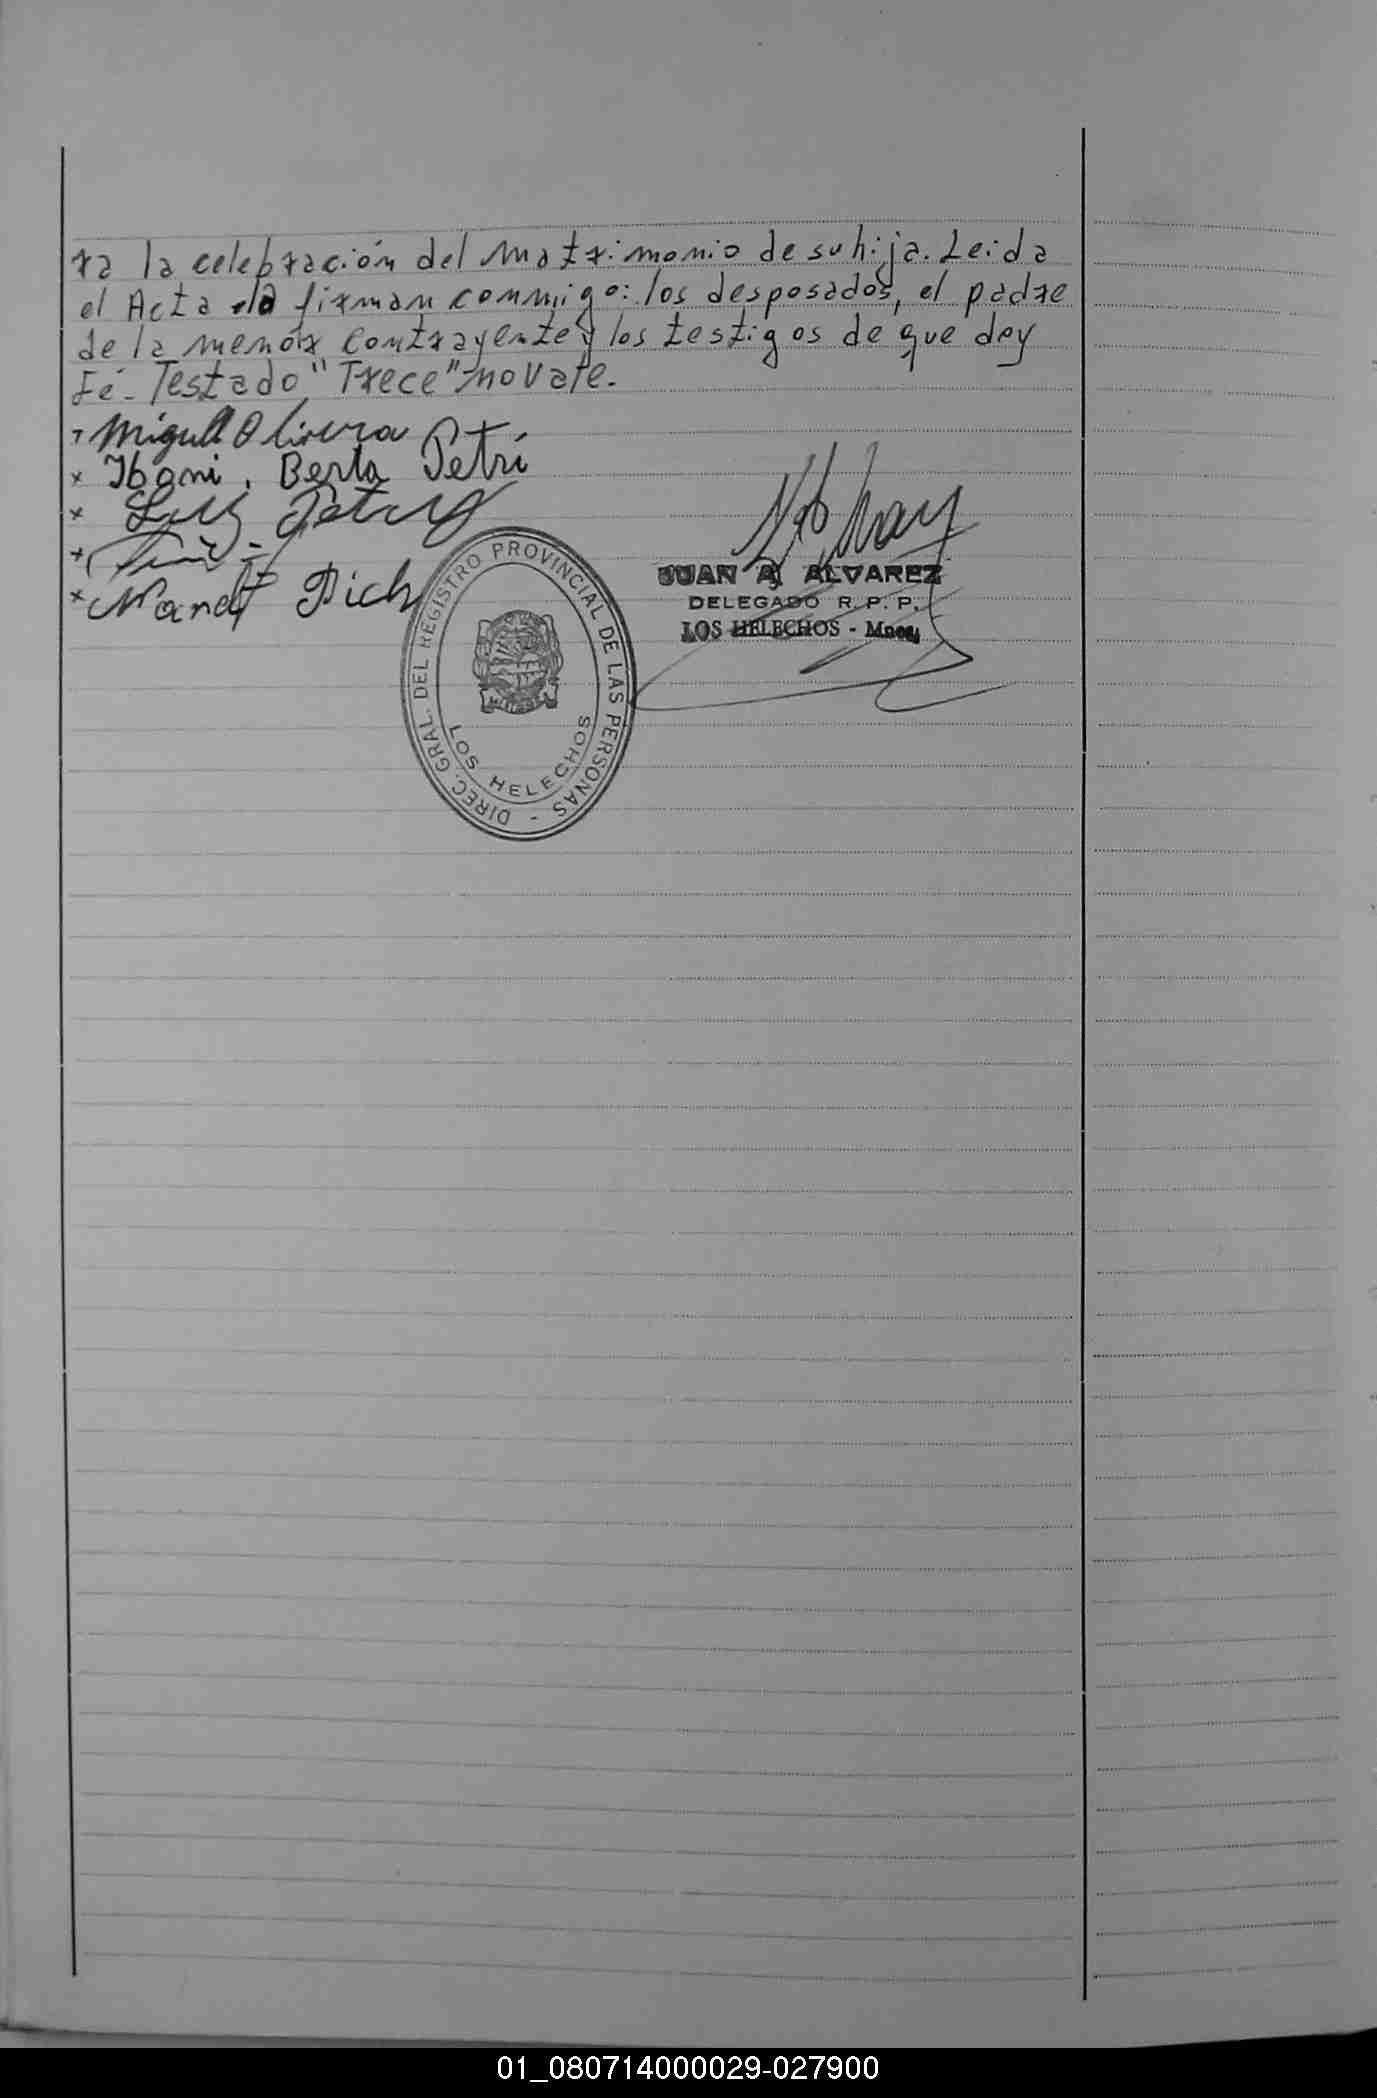 ra la celebración del Matrimonio de su hija. Leida
el Acta la firman conmigo: los desposados, el padre
de la menor contrayente y los testigos de que doy
Fé. Testado "Trece" no vale.
x Miguel Olivera
x Ibani, Berta Petri
x Luis Petry
x
x Nardt Dich
JUAN A. ALVAREZ
DELEGADO R. P. P.
LOS HELECHOS - Mnes.
DIREC. GRAL. DEL REGISTRO PROVINCIAL DE LAS PERSONAS -
LOS HELECHOS
01_080714000029-027900